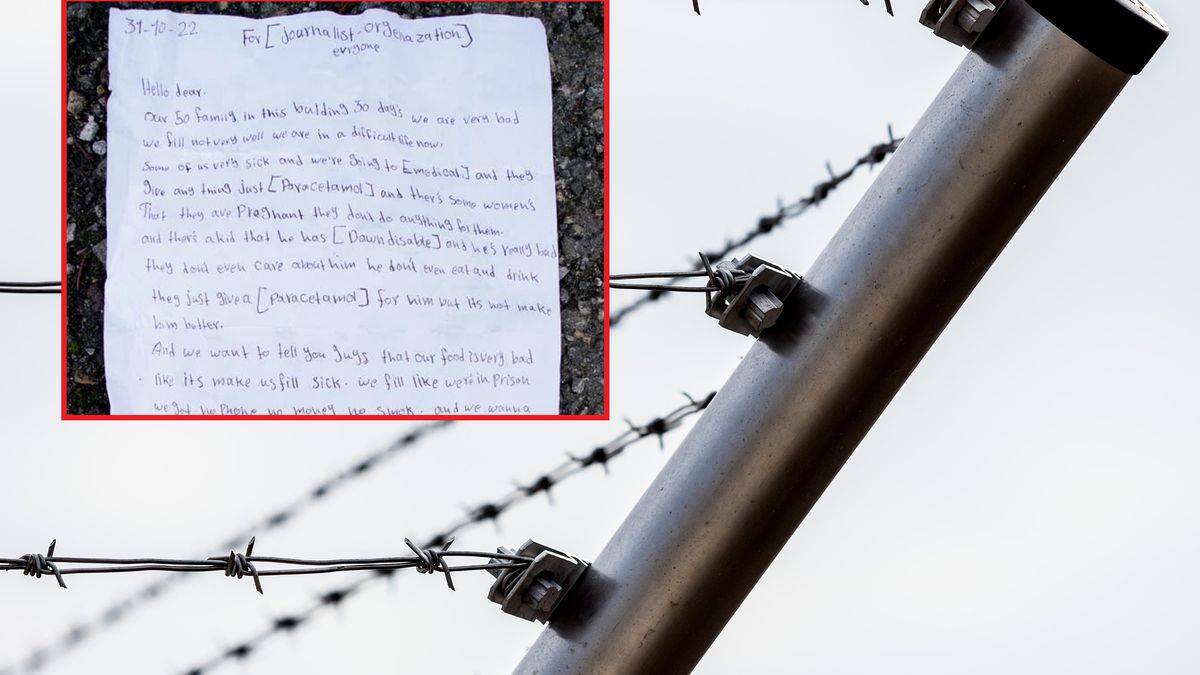 31-10-22
For [Journalist-orgenazation]
evryone
Hello dear.
Our 50 family in this bulding 30 day's we are very bad
we fill not very well we are in a difficult life now.
Some of us very sick and we're going to [medical] and they
give any thing just [Paracetamol] and there's some women's
That they are Pregnant they don't do anything for them.
and there's a kid that he has [Dawn disable] and he's really bad
they don't even care about him he don't even eat and drink
they just give a [paracetamol] for him but its not make
him better.
And we want to tell you guys that our food is very bad
like its make us fill sick. we fill like we're in prison
we got no Phone no money no smok. and we wanna